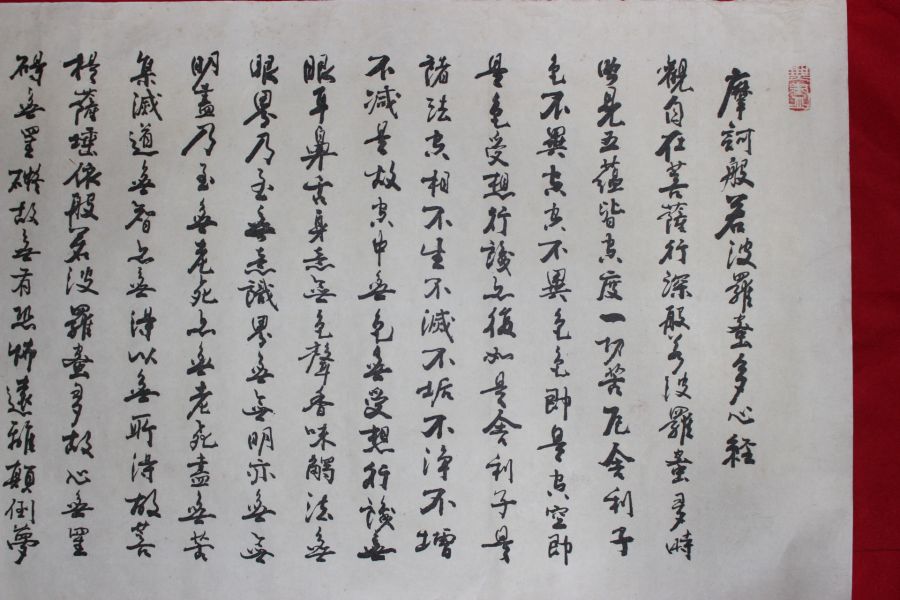 摩訶般若波羅蜜多心経
觀自在菩薩行深般若波羅蜜多時
照見五蘊皆空度一切苦厄舍利子
色不異空空不異色色即是空空即
是色受想行識亦復如是舍利子是
諸法空相不生不滅不垢不淨不增
不减是故空中無色無受想行識無
眼耳鼻舌身意無色聲香味觸法無
眼界乃至無意識界無無明亦無無
明盡乃至無老死亦無老死盡無苦
集滅道無智亦無得以無所得故菩
提薩埵依般若波羅蜜多故心無罣
碍無罣礙故無有恐怖遠離顛倒夢